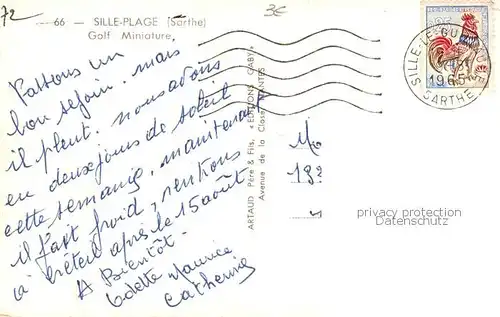 72
66 - SILLE-PLAGE (Sarthe)
3E
Golf Miniature
Passons un
bon séjour. mais
il pleut. nous avons
eu deux jours de soleil
cette semaine, maintenant
il fait froid, rentrons
à Créteil après le 15 août
A Bientôt.
Odette Maurice
Catherine
ARTAUD Père & Fils, «EDITIONS GABY»
Avenue de la Close NANTES
SILLE-LE-GUILLAUME
1965
SARTHE
privacy protection
Datenschutz